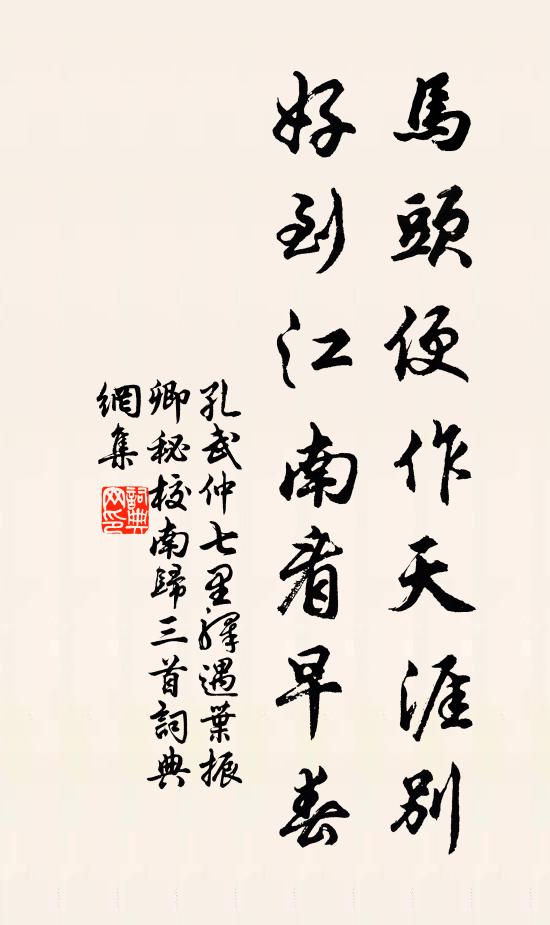 馬頭便作天涯別
好到江南看早春
孔武仲七里驛遇葉振
卿秘校南歸三首詞典
網集
詞典
网印